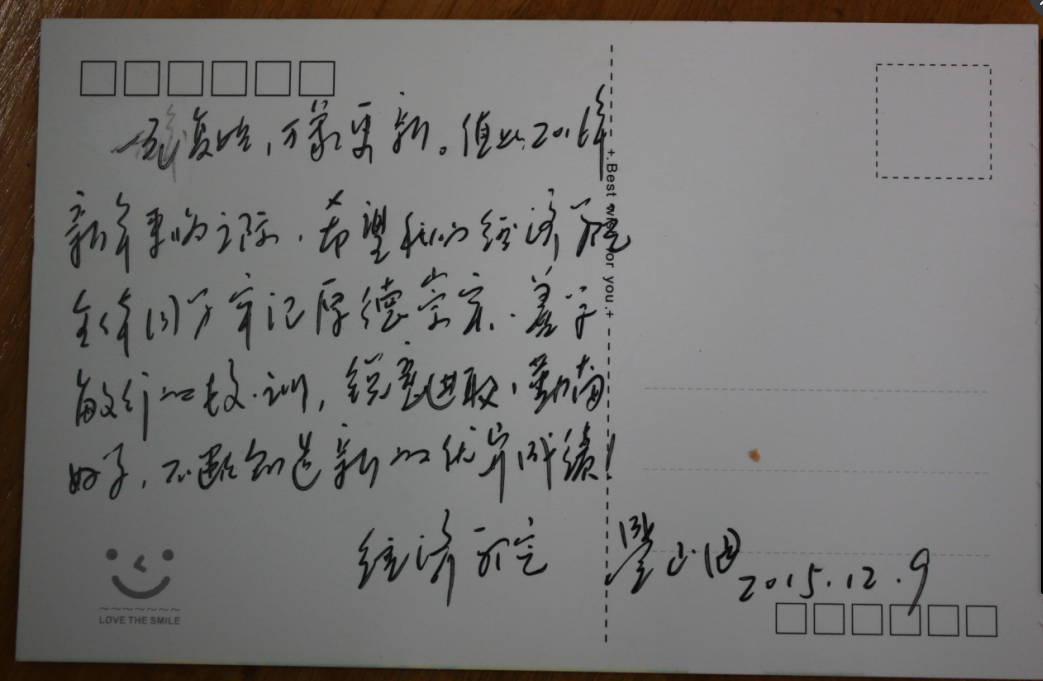 复始,万象更新。值此2016年
新年来临之际,希望我们经济学院
全体同学牢记厚德崇实、善学
敏行的校训,锐意进取,勤奋
好学,不断创造新的优异成绩!
经济学院
2015.12.9
+.Best wish for you.+
LOVE THE SMILE